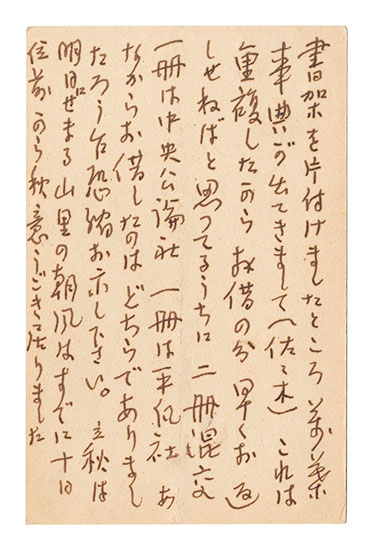 書架を片付けましたところ 萬葉
事典が出てきまして(佐々木) これは
重複したから お借の分 早くお返
しせねばと思つてるうちに 二冊混交
一冊は中央公論社 一冊は平凡社 あ
なからお借したのは どちらでありまし
たろう乍恐縮お示し下さい。立秋は
明日せまる 山里の朝風はすでに十日
位前から秋意うごき居りました